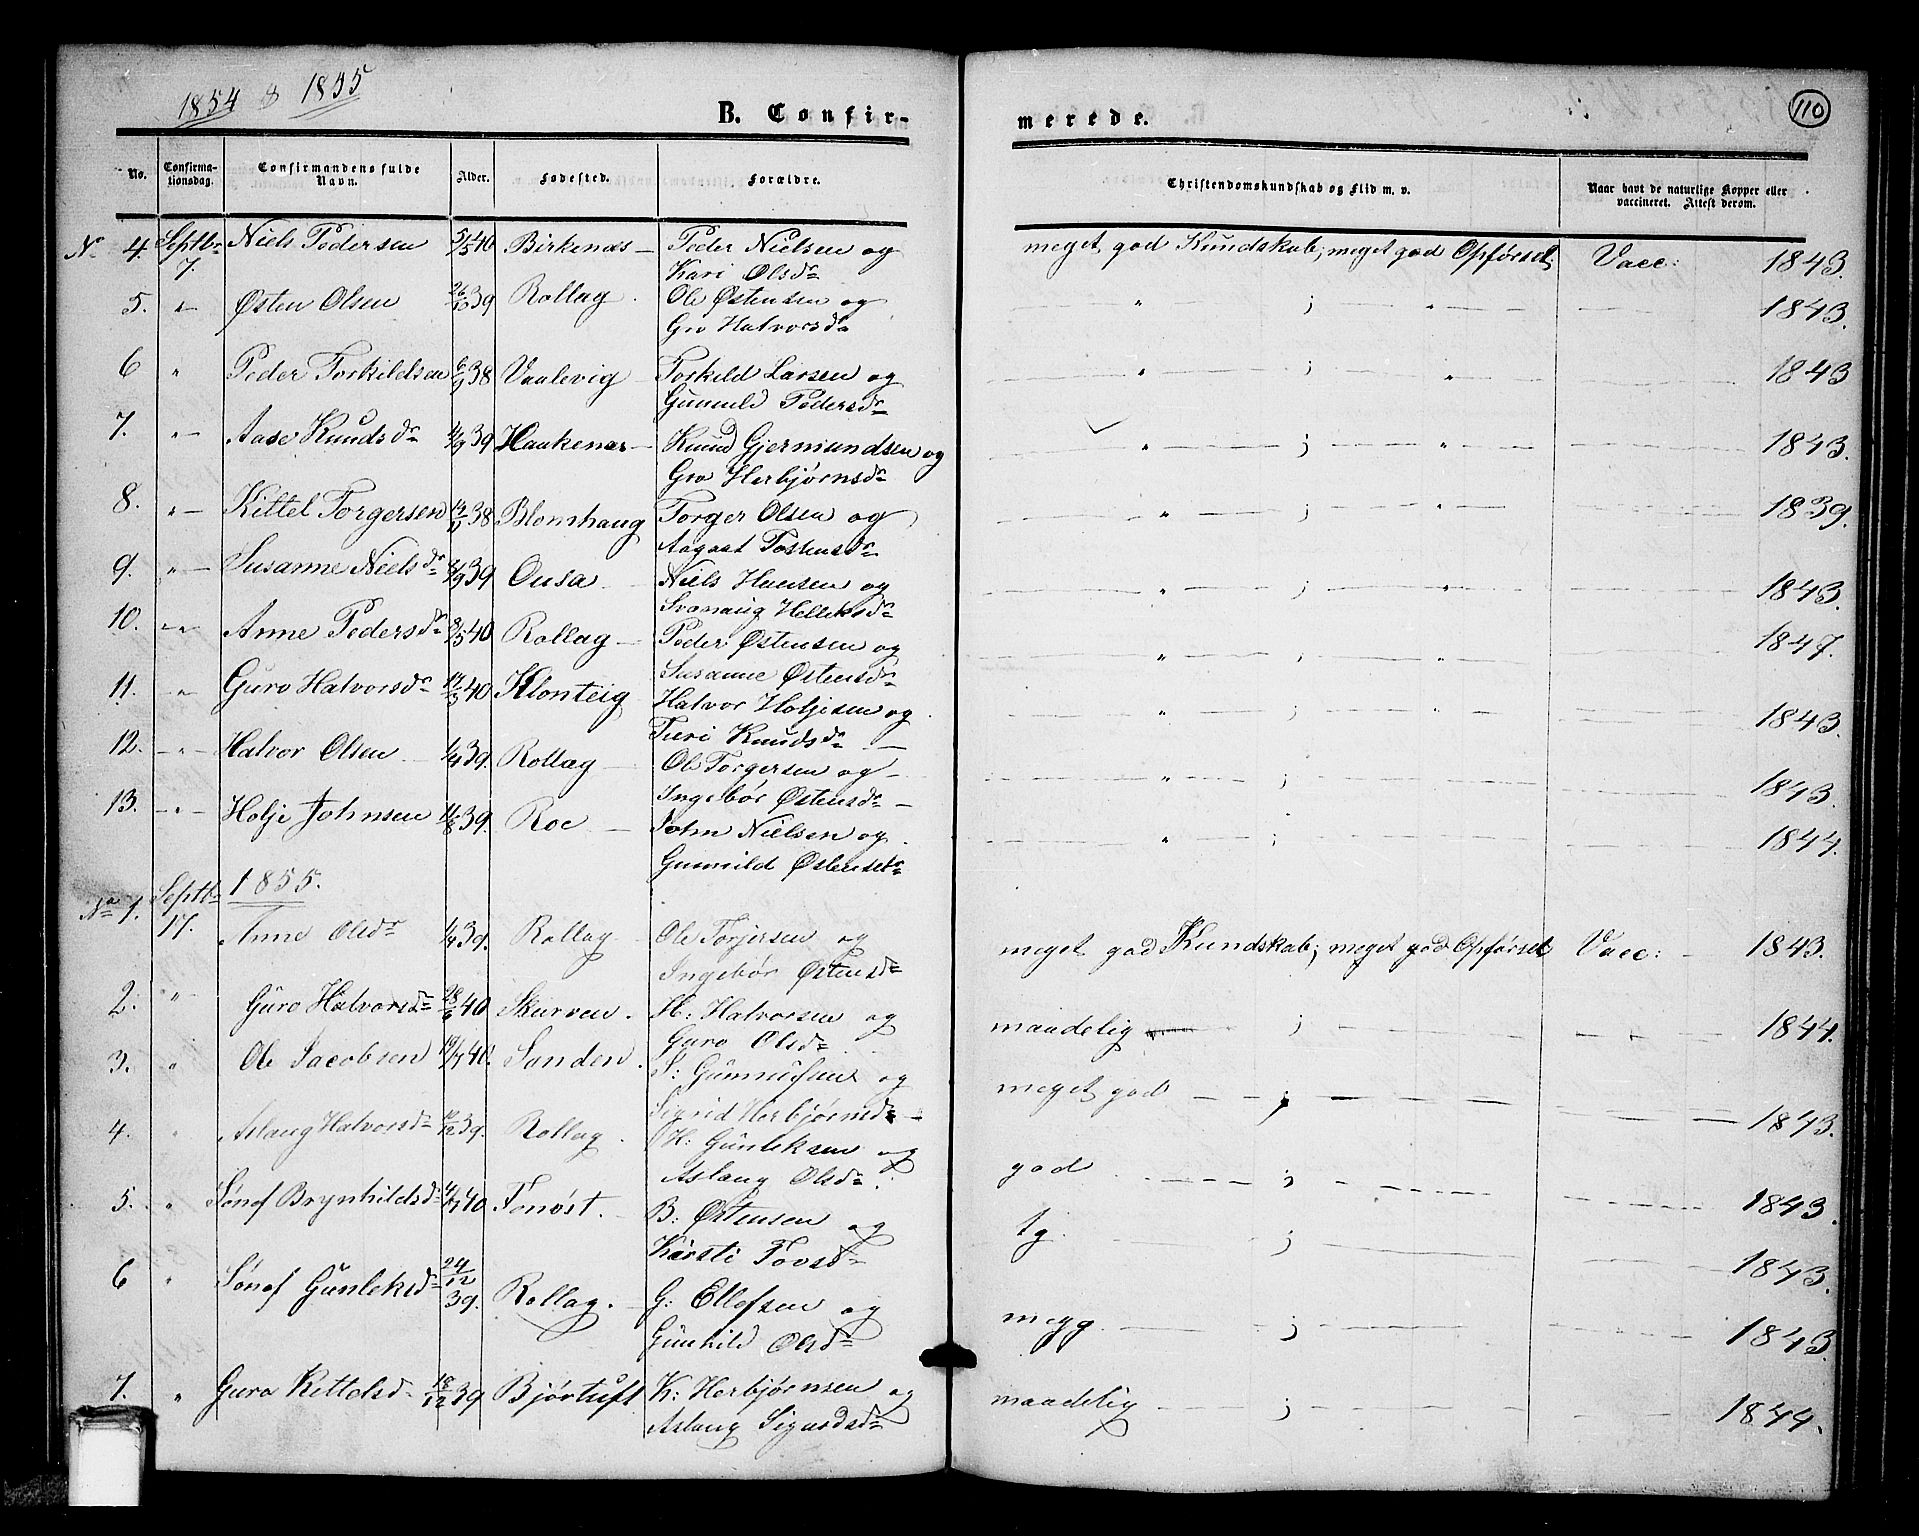 1854 & 1855
B. Confirmerede.
110
No. Confirmationsdag. Confirmandens fulde Navn. Alder. Fødested. Forældre. Christendomskundskab og Flid m. v. Naar havt de naturlige Kopper eller vaccineret. Attest derom.
No 4. Septbr 7. Niels Pedersen 5/5 40 Birkenæs Peder Nielsen og Kari Olsdr meget god Kundskab; meget god Opførsel Vacc: 1843.
5. " Østen Olsen 26/10 39 Rollag Ole Østensen og Gro Halvorsdr " ; " 1843.
6 " Peder Torkildsen 38 Vaalevig Torkild Larsen og Gunnild Pedersdr " ; " 1843
7. " Aase Knudsdr 39 Haakenæs Knud Gjermundsen og Gro Herbjørnsdr " ; " 1843.
8. " Kittel Torgersen 38 Blomhaug Torger Olsen og Aagaat Tostensdr " ; " 1839.
9. " Susanne Nielsdr 39 Ousa Niels Hansen og Svanaug Helleksdr " ; " 1843.
10. " Anne Pedersdr 40 Rollag Peder Østensen og Susanne Østensdr " ; " 1847.
11. " Guro Halvorsdr 40 Klonteig Halvor Holjesen og Turi Knudsdr " ; " 1843.
12. " Halvor Olsen 39. Rollag Ole Torgersen og Ingebør Østensdr " ; 1843.
13. " Holje Johnsen 39. Roe John Nielsen og Gunnild Østensdr " ; 1844.
1855.
No 1. Septbr 17. Anne Olsdr 39. Rollag Ole Torjersen og Ingebør Østensdr meget god Kundskab; meget god Opførsel Vacc: 1843.
2. " Guro Halvorsdr 40 Skurven. H: Halvorsen og Guro Olsdr maadelig ; 1844.
3. " Ole Jacobsen 19/7 40. Sanden. J: Gunnufsen og Sigrid Herbjørnsdr meget god ; 1843.
4. " Aslaug Halvorsdr 39. Rollag. H: Gunleksen og Aslaug Olsdr. god ; 1843.
5. " Sønof Brynhildsdr 40 Fonøst. B: Østensen og Kirsti Tovsdr tg. ; 1843.
6 " Sønof Gunleksdr 24/12 39. Rollag. G: Ellefsen og Gunhild Olsdr megg. ; 1843.
7. " Guro Kittelsdr 18/12 39 Bjørtuft K: Herbjørnsen og Aslaug Sigurdsdr maadelig ; 1844.